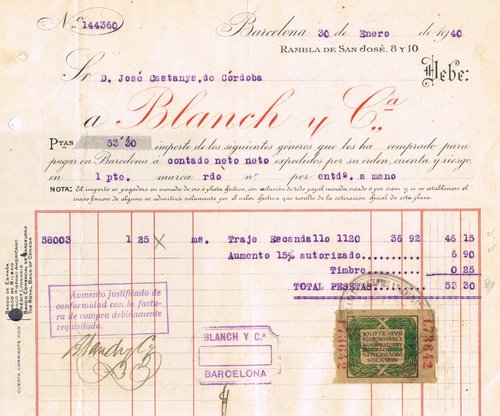 N.º 144360
Barcelona 30 de Enero de 1940
RAMBLA DE SAN JOSÉ, 8 Y 10
Sr D. José Castanys, de Córdoba
Debe:
a Blanch y C.ª
PTAS 53'30 importe de los siguientes géneros que les ha comprado para
pagar en Barcelona á contado neto neto expedidos por su orden, cuenta y riesgo,
en 1 pte. marca rdo n.º por entdª. a mano
NOTA: El importe es pagadero en moneda de oro ó plata efectiva, con exclusión de todo papel moneda creado ó por crear y si se estableciese el
curso forzoso de alguno se admitirá solamente por el valor efectivo que resulte de la cotización oficial de esta plaza.
58003 1 25 ms. Traje Escandallo 1120 36 92 46 15
Aumento 15% autorizado 6 90
Timbre 0 25
TOTAL PESETAS 53 30
Aumento justificado de
conformidad con la factu-
ra de compra debidamente
requisitada.
Blanch y C.ª
BLANCH Y Cª.
BARCELONA
SERVICIOS
PROVINCIALES
BARCELONA
173642
173642
CUENTA CORRIENTE CON
BANCO DE ESPAÑA
BANCO DE BILBAO
BANCO HISPANO AMERICANO
BANCO COMERCIAL DE BARCELONA
THE ROYAL BANK OF CANADA